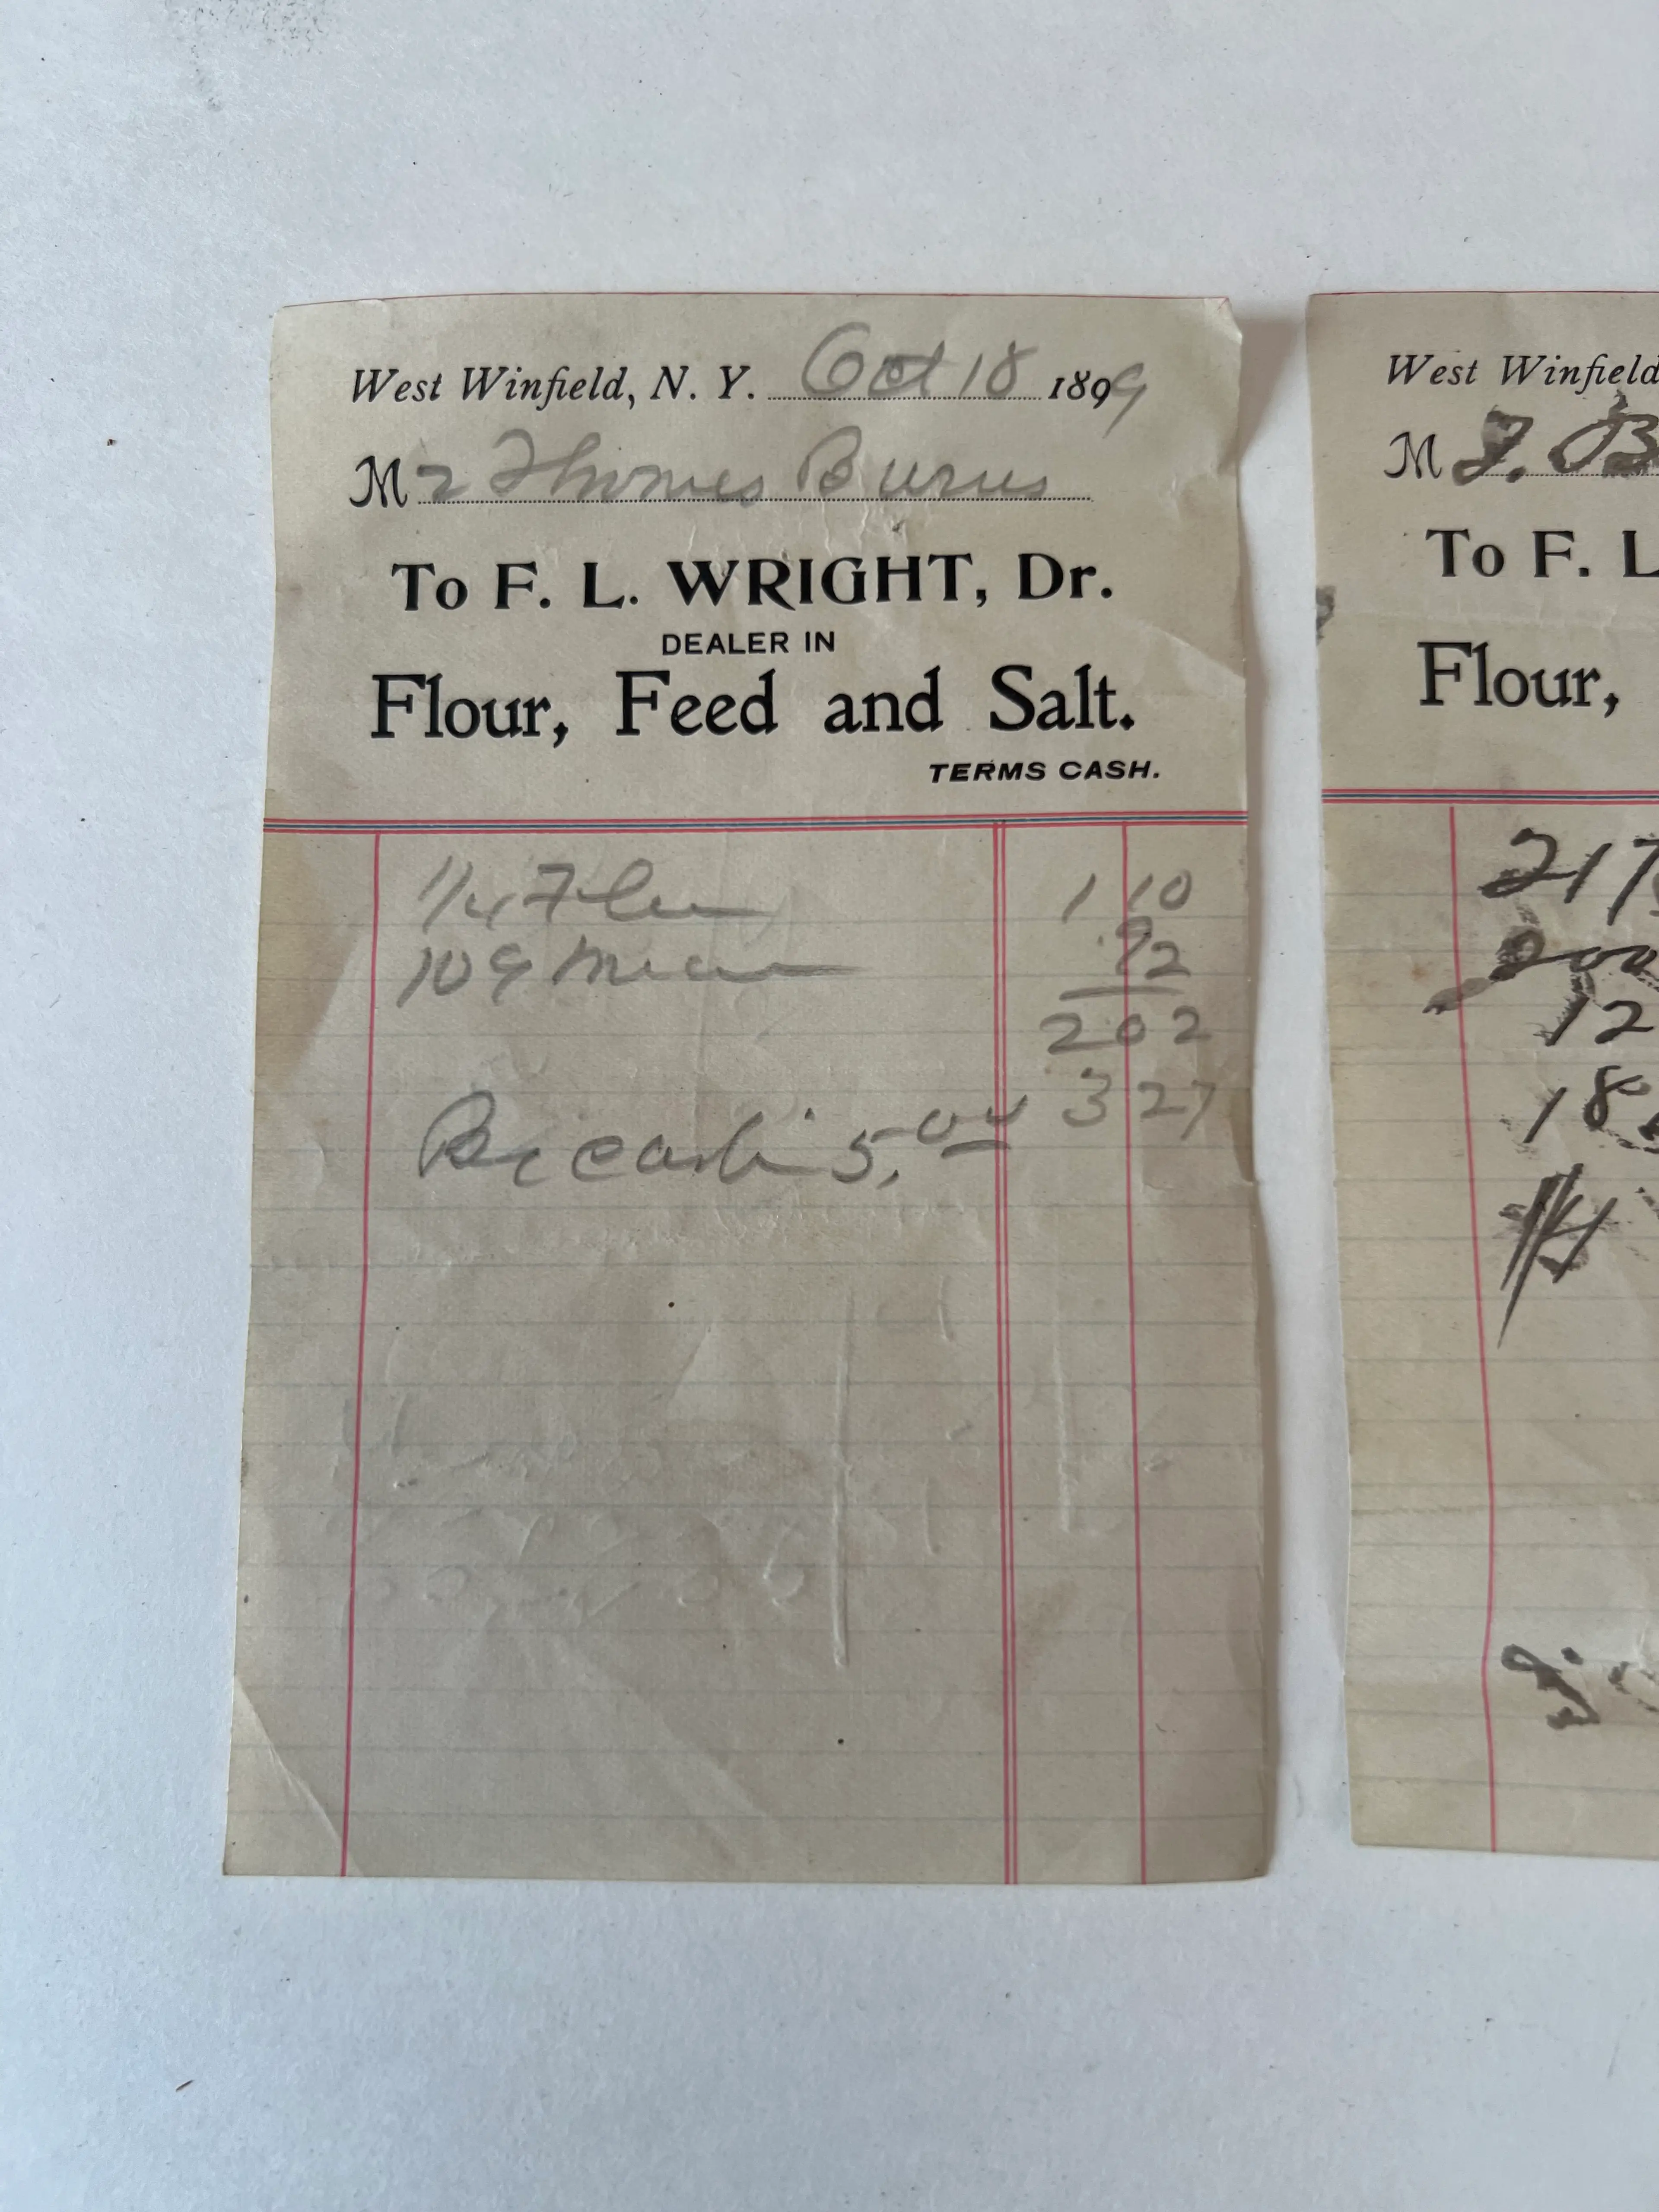 West Winfield, N. Y. Oct 18 1899
Mr Thomes Burns
To F. L. WRIGHT, Dr.
DEALER IN
Flour, Feed and Salt.
TERMS CASH.
1/4 Flou 1 10
109 .92
2 02
3 27
Rec cash 5.00
West Winfield
M J. B
To F. L
Flour,
217
200
12
18
J.